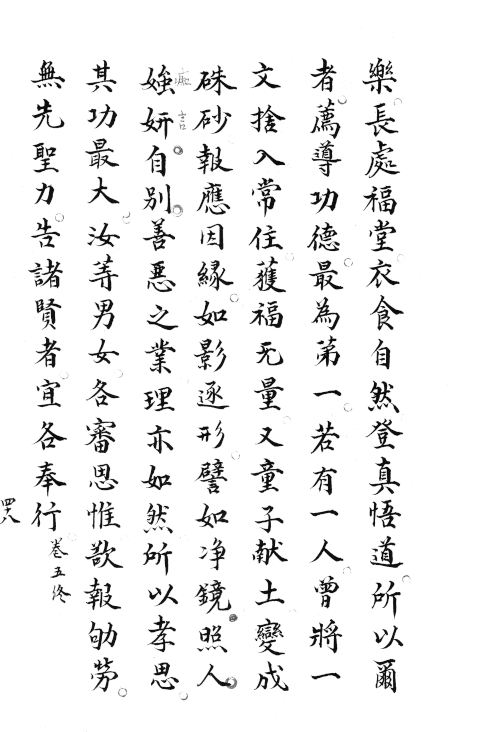 樂長處福堂衣食自然登真悟道所以爾
者薦導功德最為第一若有一人曾將一
文捨入常住獲福无量又童子献土變成
硃砂報應因緣如影逐形譬如净鏡照人
媸妍自別善惡之業理亦如然所以孝思
其功最大汝等男女各審思惟欲報劬勞
無先聖力告諸賢者宜各奉行
卷五终
四八